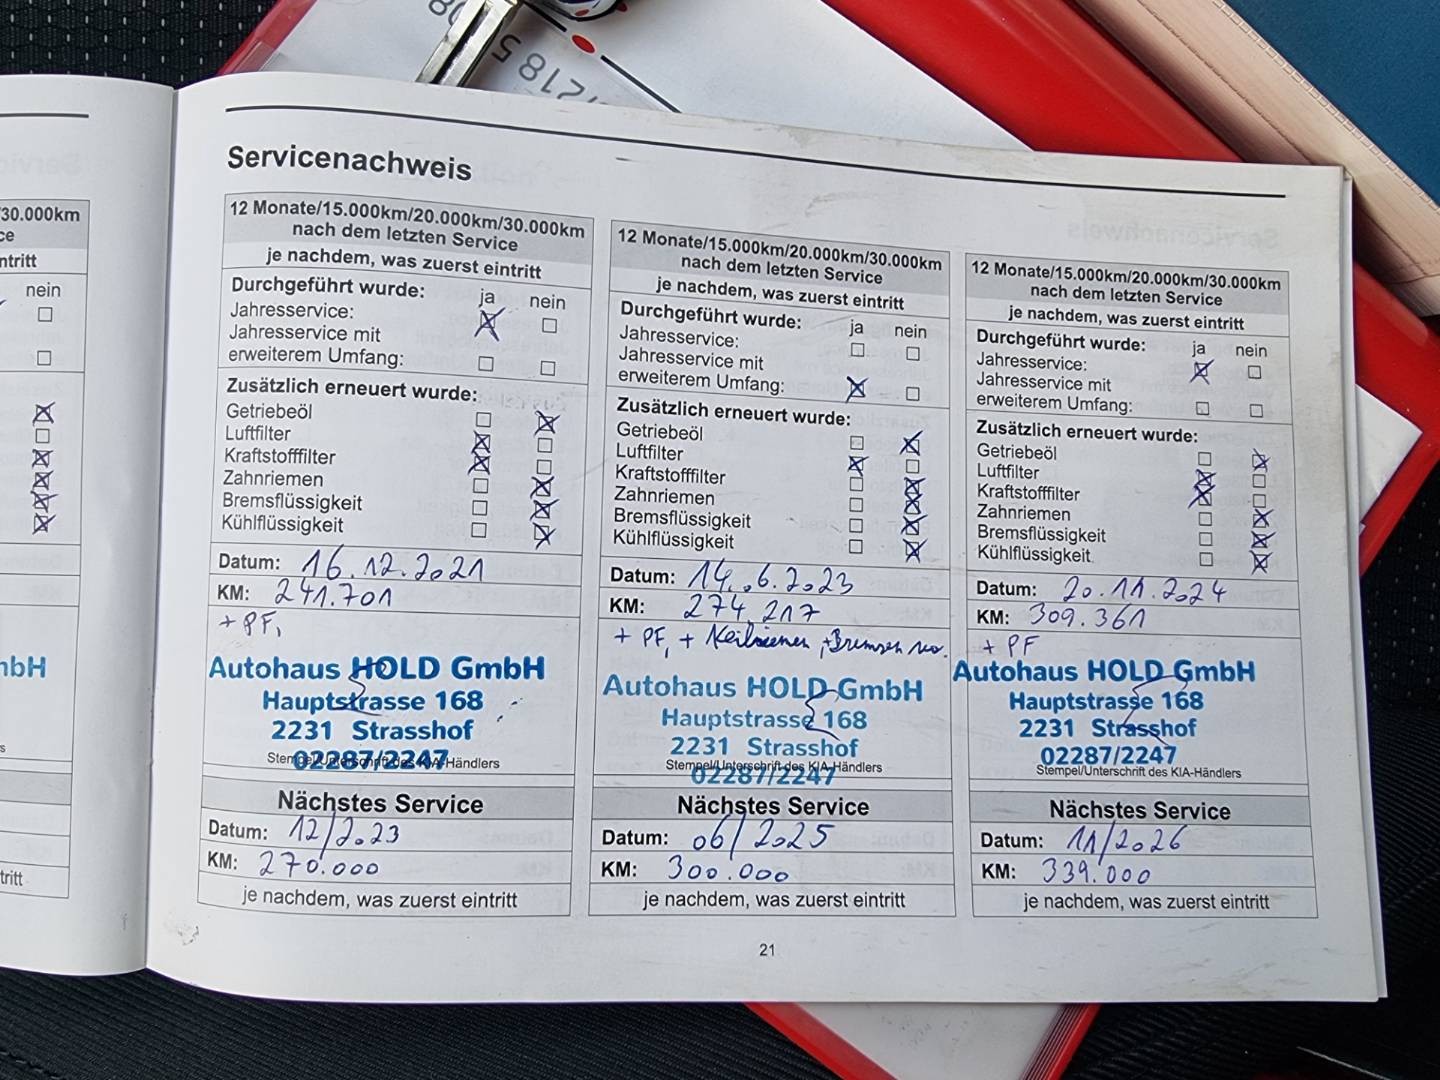 /218 5
30.000km
ce
ntritt
nein
nbH
s
tritt
Servicenachweis
12 Monate/15.000km/20.000km/30.000km
nach dem letzten Service
je nachdem, was zuerst eintritt
Durchgeführt wurde: ja nein
Jahresservice:
Jahresservice mit
erweiterem Umfang:
Zusätzlich erneuert wurde:
Getriebeöl
Luftfilter
Kraftstofffilter
Zahnriemen
Bremsflüssigkeit
Kühlflüssigkeit
Datum: 16.12.2021
KM: 241.701
+ PF,
Autohaus HOLD GmbH
Hauptstrasse 168
2231 Strasshof
02287/2247
Stempel/Unterschrift des KIA-Händlers
Nächstes Service
Datum: 12/2023
KM: 270.000
je nachdem, was zuerst eintritt
12 Monate/15.000km/20.000km/30.000km
nach dem letzten Service
je nachdem, was zuerst eintritt
Durchgeführt wurde: ja nein
Jahresservice:
Jahresservice mit
erweiterem Umfang:
Zusätzlich erneuert wurde:
Getriebeöl
Luftfilter
Kraftstofffilter
Zahnriemen
Bremsflüssigkeit
Kühlflüssigkeit
Datum: 14.6.2023
KM: 274.217
+ PF, + Keilriemen, + Bremsen
Autohaus HOLD GmbH
Hauptstrasse 168
2231 Strasshof
Stempel/Unterschrift des KIA-Händlers
02287/2247
Nächstes Service
Datum: 06/2025
KM: 300.000
je nachdem, was zuerst eintritt
12 Monate/15.000km/20.000km/30.000km
nach dem letzten Service
je nachdem, was zuerst eintritt
Durchgeführt wurde: ja nein
Jahresservice:
Jahresservice mit
erweiterem Umfang:
Zusätzlich erneuert wurde:
Getriebeöl
Luftfilter
Kraftstofffilter
Zahnriemen
Bremsflüssigkeit
Kühlflüssigkeit
Datum: 20.11.2024
KM: 309.361
+ PF
Autohaus HOLD GmbH
Hauptstrasse 168
2231 Strasshof
02287/2247
Stempel/Unterschrift des KIA-Händlers
Nächstes Service
Datum: 11/2026
KM: 339.000
je nachdem, was zuerst eintritt
21